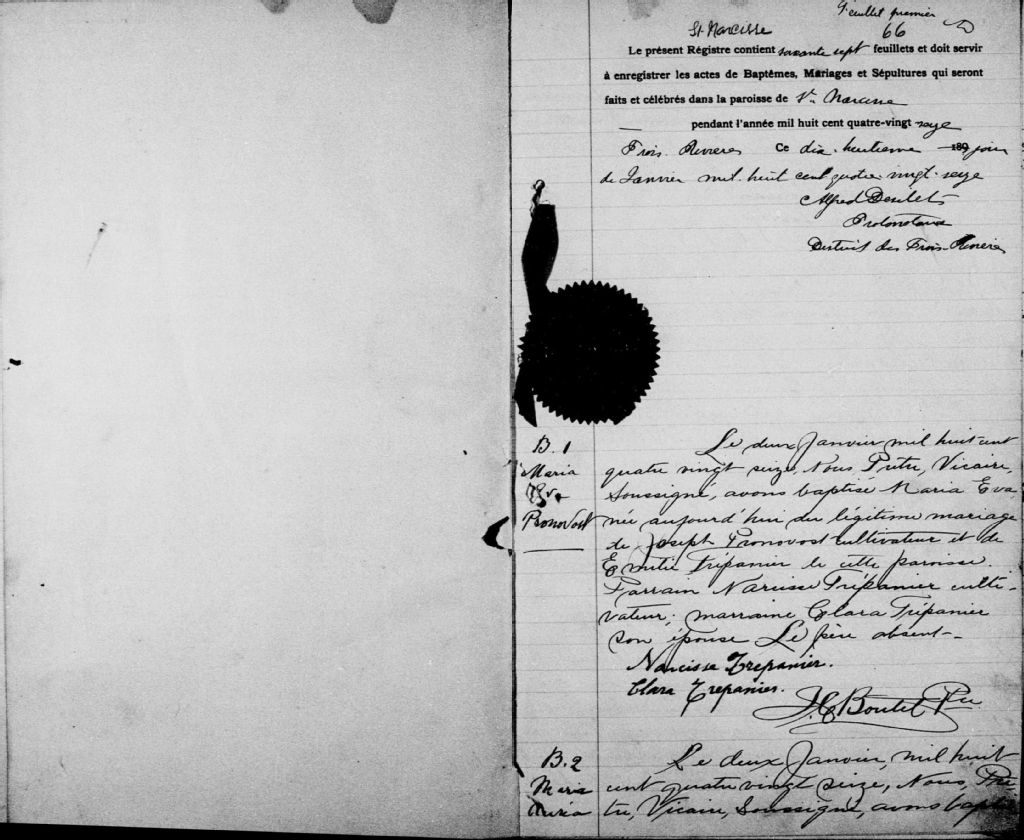 feuillet premier
66
St Narcisse
Le présent Régistre contient soixante sept feuillets et doit servir
à enregistrer les actes de Baptêmes, Mariages et Sépultures qui seront
faits et célébrés dans la paroisse de St Narcisse
pendant l'année mil huit cent quatre-vingt seize
Trois-Rivières Ce dix-huitième 189 jour
de Janvier mil-huit cent quatre-vingt-seize
Alfred Desilets
Protonotaire
District des Trois-Rivières
B. 1
Maria
Eva
Pronovost
Le deux Janvier mil huit cent
quatre vingt seize, Nous Prêtre, Vicaire,
Soussigné, avons baptisé Maria Eva
née aujourd'hui du légitime mariage
de Joseph Pronovost cultivateur et de
Emilie Trépanier de cette paroisse.
Parrain Narcisse Trépanier culti-
vateur; marraine Clara Trépanier
son épouse Le père absent-
Narcisse Trepanier.
Clara Trepanier.
J. C Boutet Ptre
B. 2
Maria
Le deux Janvier, mil huit
cent quatre vingt seize, Nous, Prê-
tre, Vicaire, Soussigné, avons bapti